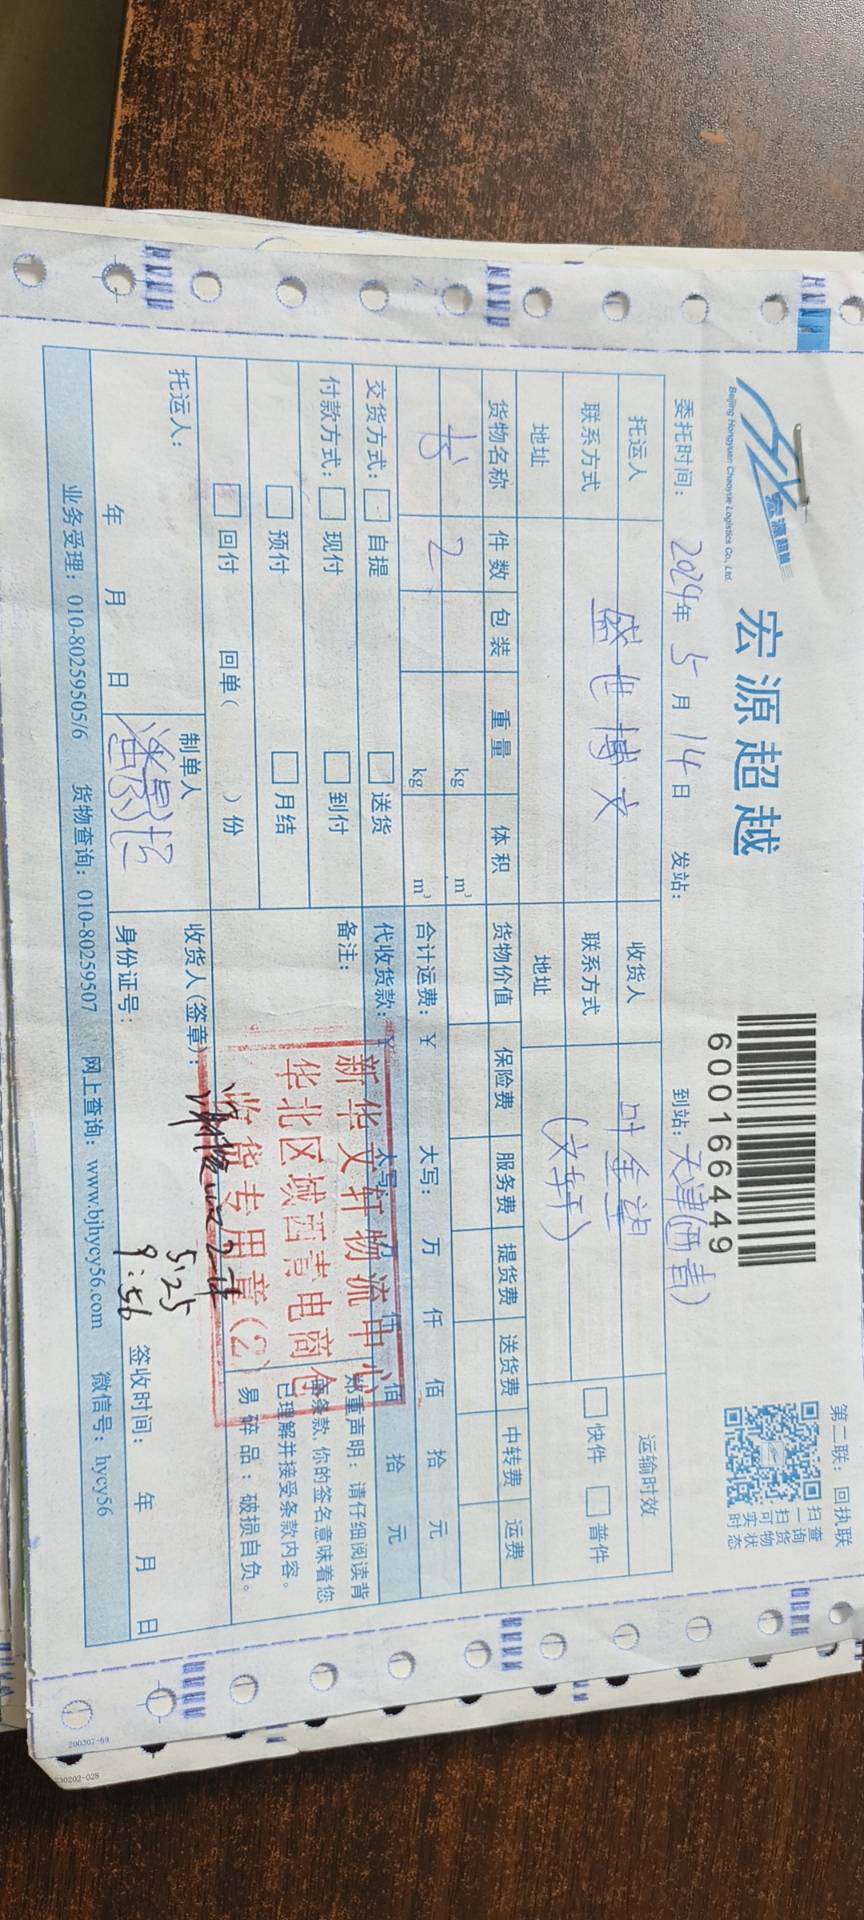 第二联：回执联
宏源超越
Beijing Hongyuan Chaoyue Logistics Co., Ltd.
宏源超越
600166449
扫一扫可实时
查询货物状态
委托时间：2024年5月14日 发站： 到站：天津(西青)
托运人 盛世博文 收货人 叶金望 运输时效
联系方式 联系方式 (文轩) 快件 普件
地址 地址
货物名称 件数 包装 重量 体积 货物价值 保险费 服务费 提货费 送货费 中转费 运费
书 2 kg m³
kg m³ 合计运费：￥ 大写： 万 仟 佰 拾 元
交货方式： 自提 送货 代收货款：￥ 大写 仟 佰 拾 元
付款方式： 现付 到付 备注：
预付 月结
回付 回单( )份
郑重声明：请仔细阅读背
面条款,你的签名意味着您
已理解并接受条款内容。
易碎品：破损自负。
新华文轩物流中心
华北区域西青电商仓
收货专用章(2)
托运人： 制单人 收货人(签章)：
5.25
9:56
年 月 日 身份证号： 签收时间： 年 月 日
业务受理：010-80259505/6 货物查询：010-80259507 网上查询：www.bjhycy56.com 微信号：hycy56
200307-69
230202-028